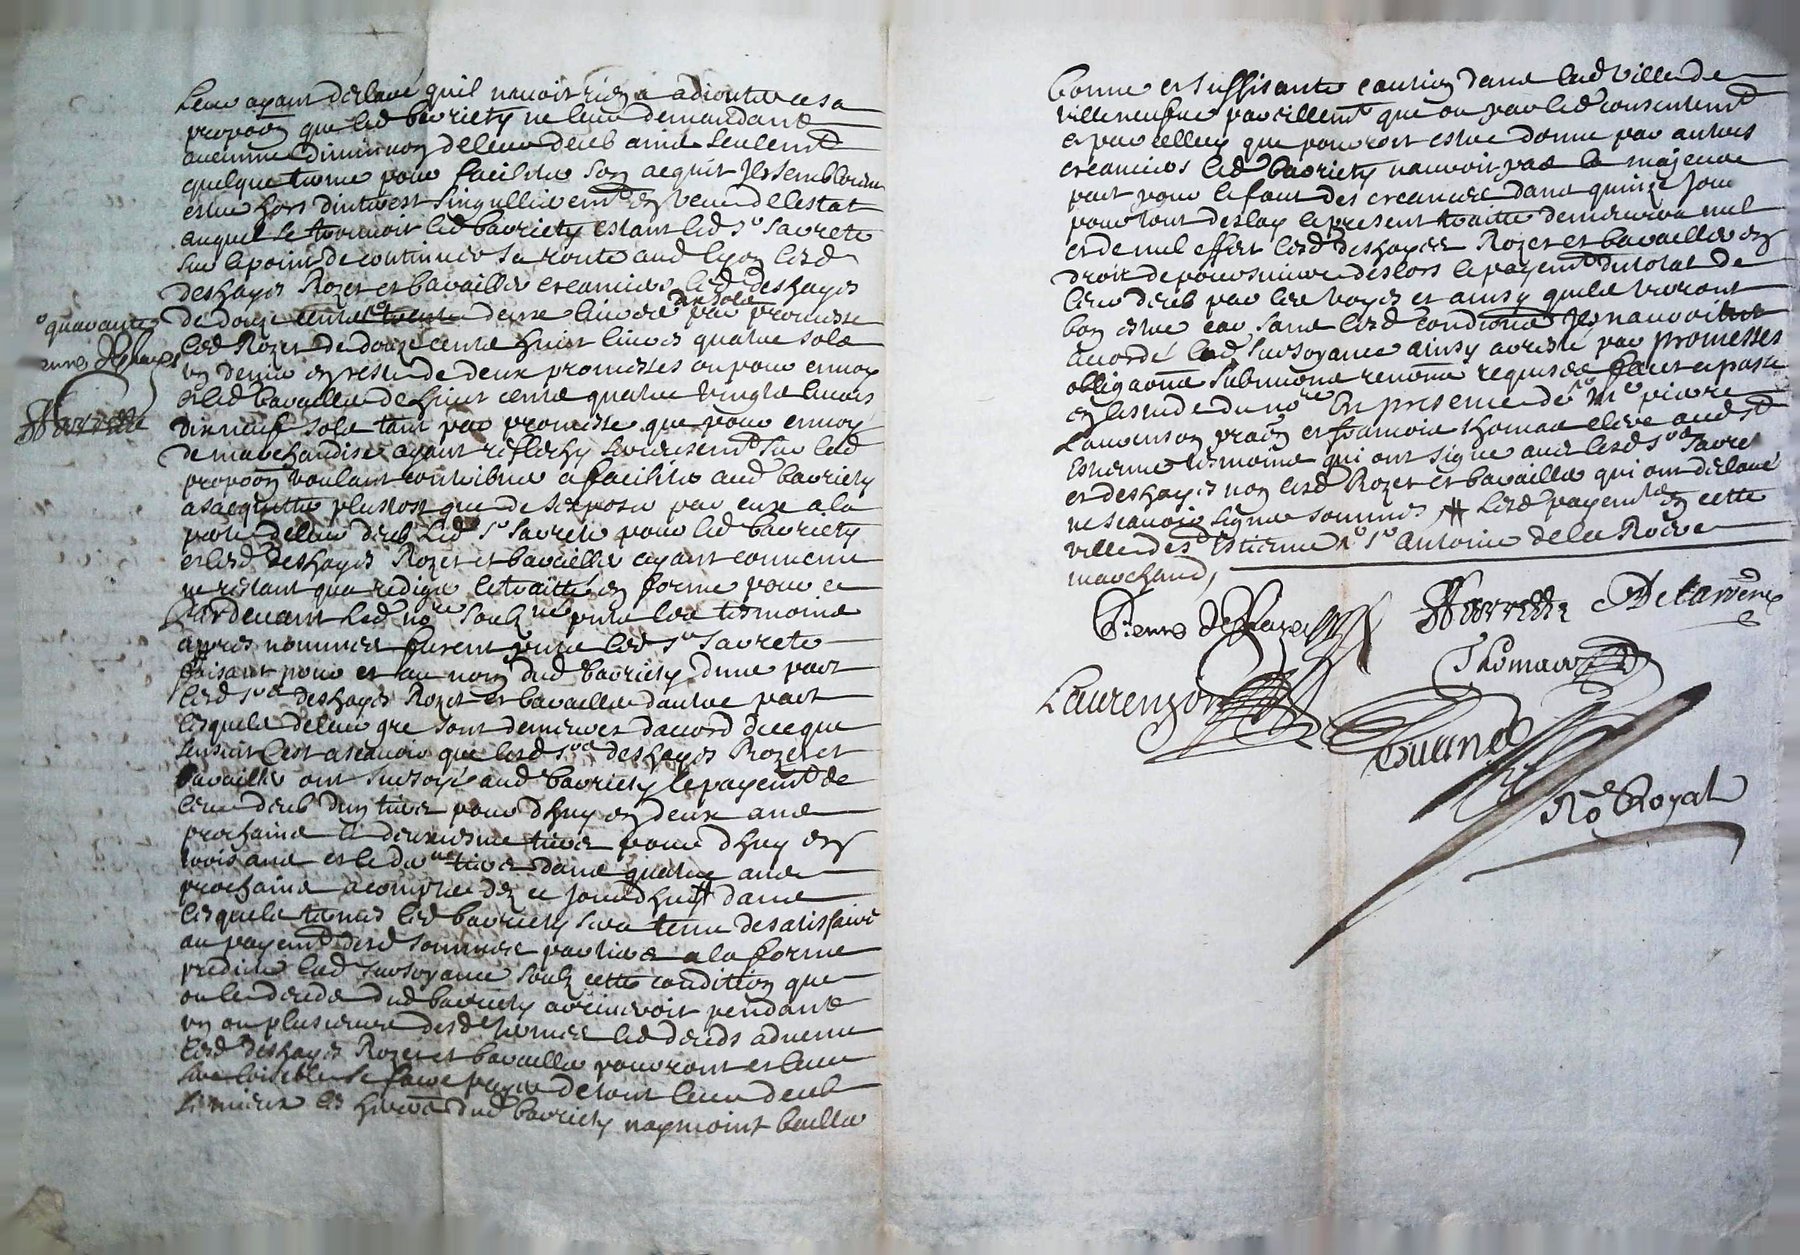 Leur ayant declaré quil navoit rien a adiouter a sa
propoon que led bavriety ne leur demandant
aucune diminuon de leur deub ains seulemt
quelque terme pour faciliter son acquit Ils sembloient
estre hors dinterest singullieremt en veue de lestat
auquel se trouvoit led bavriety estant led sr savrete
sur le point de continuer sa route aud lyon lesd
deshayes Rozet et bavaillier creanciers led deshayes
de douze cents livres par promesse
led Rozet de douze cents huict livres quatre sols
un denier en reste de deux promesses ou pour envoy
et led bavaillier de huict cents quatre vingts livres
dix neuf sols tant par promesse que pour envoy
de marchandise ayant reflechy sur led
propoon voulant contribuer a faciliter aud bavriety
a sacquitter plustost que de sexposer par eux a la
perte de leur deub led sr savrete pour led bavriety
et lesd deshayes Rozet et bavaillier ayant convenu
ne restant qua rediger le traitté en forme pour ce
pardevant led nore soubzne pnts les tesmoins
apres nommés furent pnts led sr savrete
faisant pour et au nom dud bavriety dune part
lesd srs deshayes Rozet et bavaillier dautre part
lesquels de leur gre sont demeures daccord de ce que
sensuit Cest ascavoir que lesd srs deshayes Rozet et
bavaillier ont sursoyé aud bavriety le payemt de
leur deub dun tiers pour dhuy en deux ans
prochains le deuxiesme tiers pour dhuy en
trois ans et le der tiers dans quatre ans
prochains a compter dez ce jourdhuy dans
lesquels termes led bavriety sera tenu de satisfaire
au payemt desd sommes par tiers a la forme
predite lad sursoyance soubz cette condition que
ou le deceds dud bavriety arriveroit pendant
un ou plusieurs desd termes led deceds advenu
lesd deshayes Rozet et bavaillier pourront et leur
sera loisible se faire payer de tout leur deub
si mieux les hoirs dud bavriety nayment bailler
quarante
Pierre deshayes
Savrette
bonne et suffisante caution dans lad ville de
villeneufve pareillemt que ou par led consentemt
et par celluy que pourront estre donné par autres
creanciers led bavriety nauroit pas la majeure
part pour le faict des creances dans quinze jours
pour tout deslay le present traitte demeurera nul
et de nul effect lesd deshayes Rozet et bavaillier en
droit de poursuivre deslors le payemt du total de
leur deub par les voyes et ainsy quils verront
bon estre car sans lesd conditions Ils nauroient
accordé lad sursoyance ainsy arresté par promesses
obligaons submions renons requises faict et passé
en lestude du nore En presence de Me pierre
Laurenson praen et francois thomas clerc aud St
Estienne tesmoins qui ont signé avec lesd srs savrete
et deshayes non lesd Rozet et bavaillier qui ont declaré
ne scavoir signer sommés lesd payements en cette
ville de St Estienne sr Antoine de la Roëre
marchand,
Pierre deshayes Savrette
Laurenson Thomas
No Royal